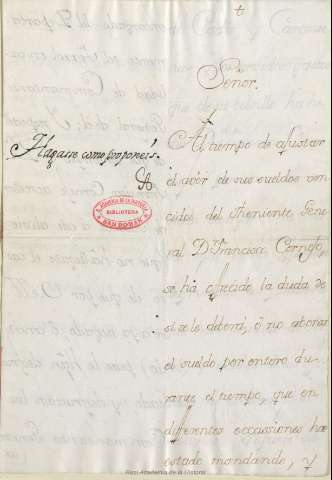 Señor.
Hagasse como proponeis.
Al tiempo de ajustar
el aver de sus sueldos ven-
cidos del Theniente Gene-
ral Dn Francisco Cornejo,
se há ofrecido la duda de
si se le deberá, ó no abonar
el sueldo por entero du-
rante el tiempo, que en
differentes occassiones ha
estado mandando, y
BIBLIOTECA
Real Academia de la Historia